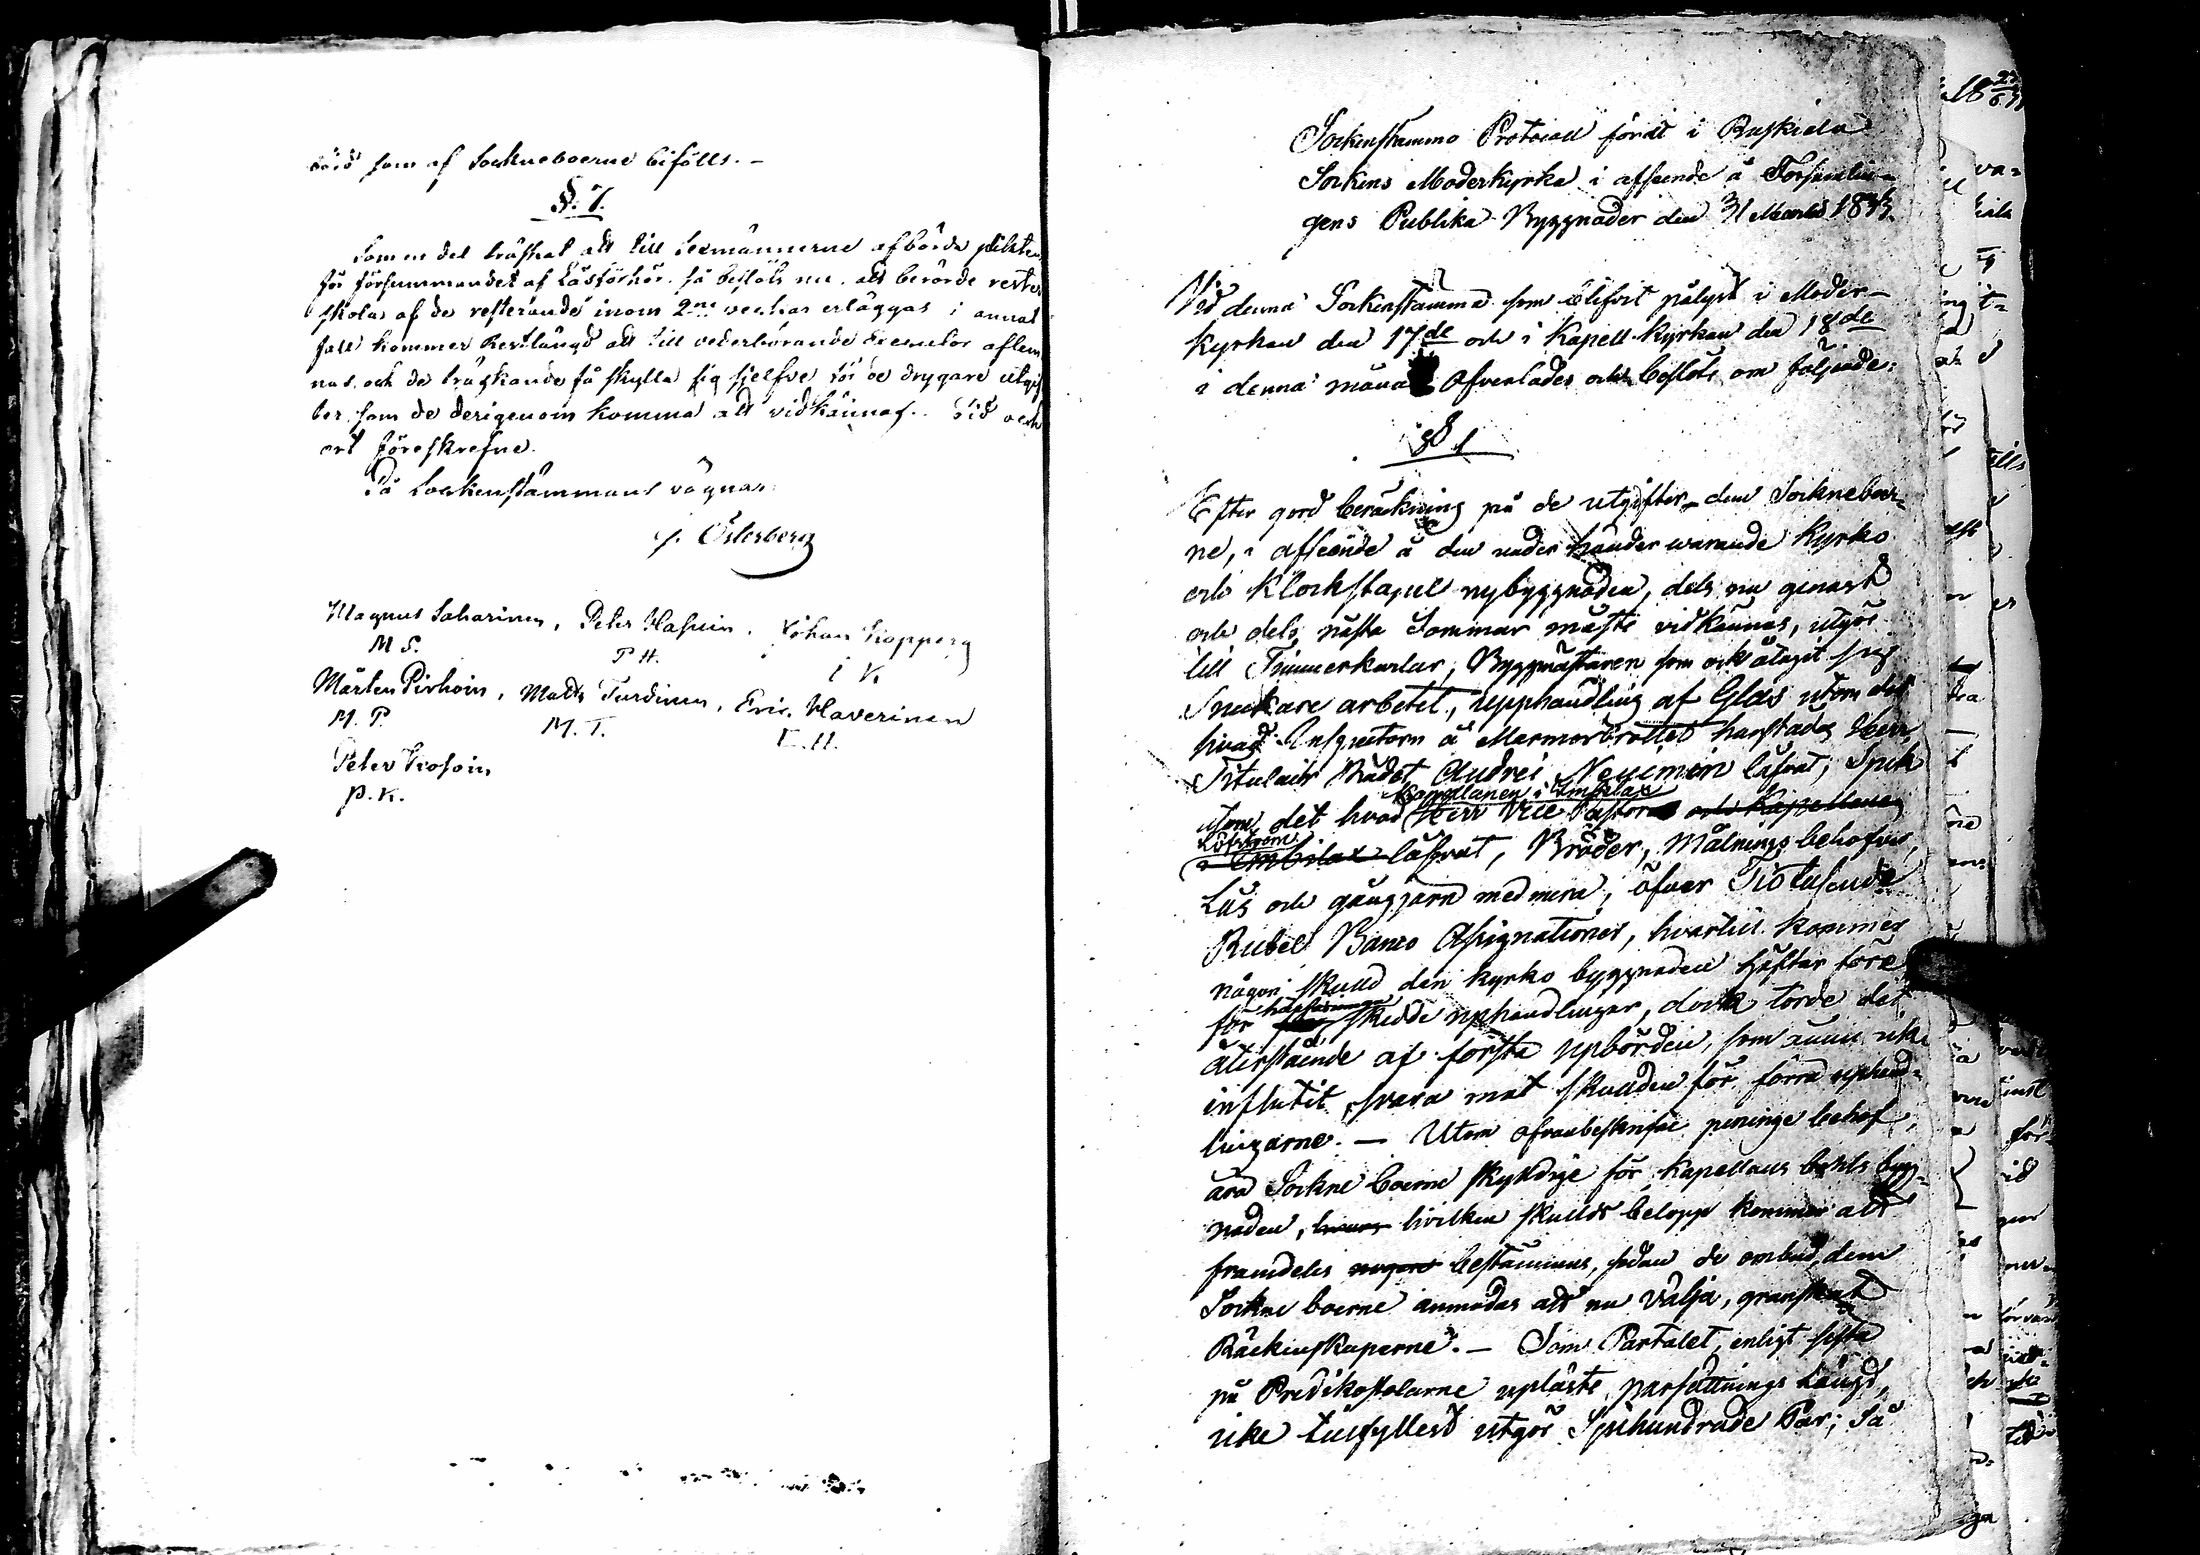 som af Sockneboerne bifölls. -
§. 7.
Som en del tråskat att till Sexmännerne afbörda plikten
för försummandet af Läsförhör, så beslöts nu, att berörde rester
skola af de resterande inom 2ne veckor erläggas i annat
fall kommer Restlängd att till vederbörande Executor aflem
nas, och de tråskande få skylla sig sjelfve för de drygare utgif
ter som de derigenom komma att vidkännas. Tid och
ort föreskrefne.
På Sockenstämmans vägnar
J. Österberg
Magnus Saharinen, Peter Hassuin, Johan Kopperg
M S. P H. I K
Mårten Pirhoin, Matts Turdinen, Eric Haverinen
M. P. M. T. E. H.
Peter Kosoin
P. K.
Sockenstämmo Protocoll fördt i Ruskiala
Sockens Moderkyrka i afseende å Församlin-
gens Publika Byggnader den 31 Martii
Vid denna Sockenstämma som blifvit pålyst i Moder-
kyrkan den 17de och i Kapell kyrkan den 18de
i denna månad Öfverlades och beslöts om följande:
§ 1
Efter gord beräkning på de utgifter dem Socknebor-
ne, i afseende å den under händer warande Kyrko
och Klockstapul nybyggnaden, dels nu genast
och dels nästa Sommar måste vidkännas, utgör
till Timmerkarlar, Byggmästaren som ock åtagit sig
Snickare arbetet, upphandling af Glas utom det
hvad Inspectorn å Marmorbrottet härstädes Herr
Titulair Rådet Andrei Neuemin låfvat, Spik
Kapellanen i Imbilax
utom det hvad Herr Vice Pastor och Kapellanen
Löfström
i Imbilax låfvat, Bräder, Målnings behofver,
Lås och gångjärn med mera, öfver Tiotusende
Rubel Banco Assignationer, hvartill kommer
någon skuld den kyrko byggnaden häftar före
för skedde uphandlingar, dock torde det
återstående af första upbörden, som ännu icke
influtit, svara mot skulden för förra uphand-
lingarne. — Utom ofvanbeskrifne peninge behof,
äro Sockne boerne skyldige för Kapellans bohls byg-
naden, hvilken skulds belopp kommer att
framdeles bestämmas, sedan de ombud, dem
Sockne boerne anmodas att nu välja, granskat
Räckenskaperne. — Som Partalet, enligt sista
på Predikostolarne upläste parsättnings Längd,
icke tillfyllest utgör Sjuhundrade Par; Så